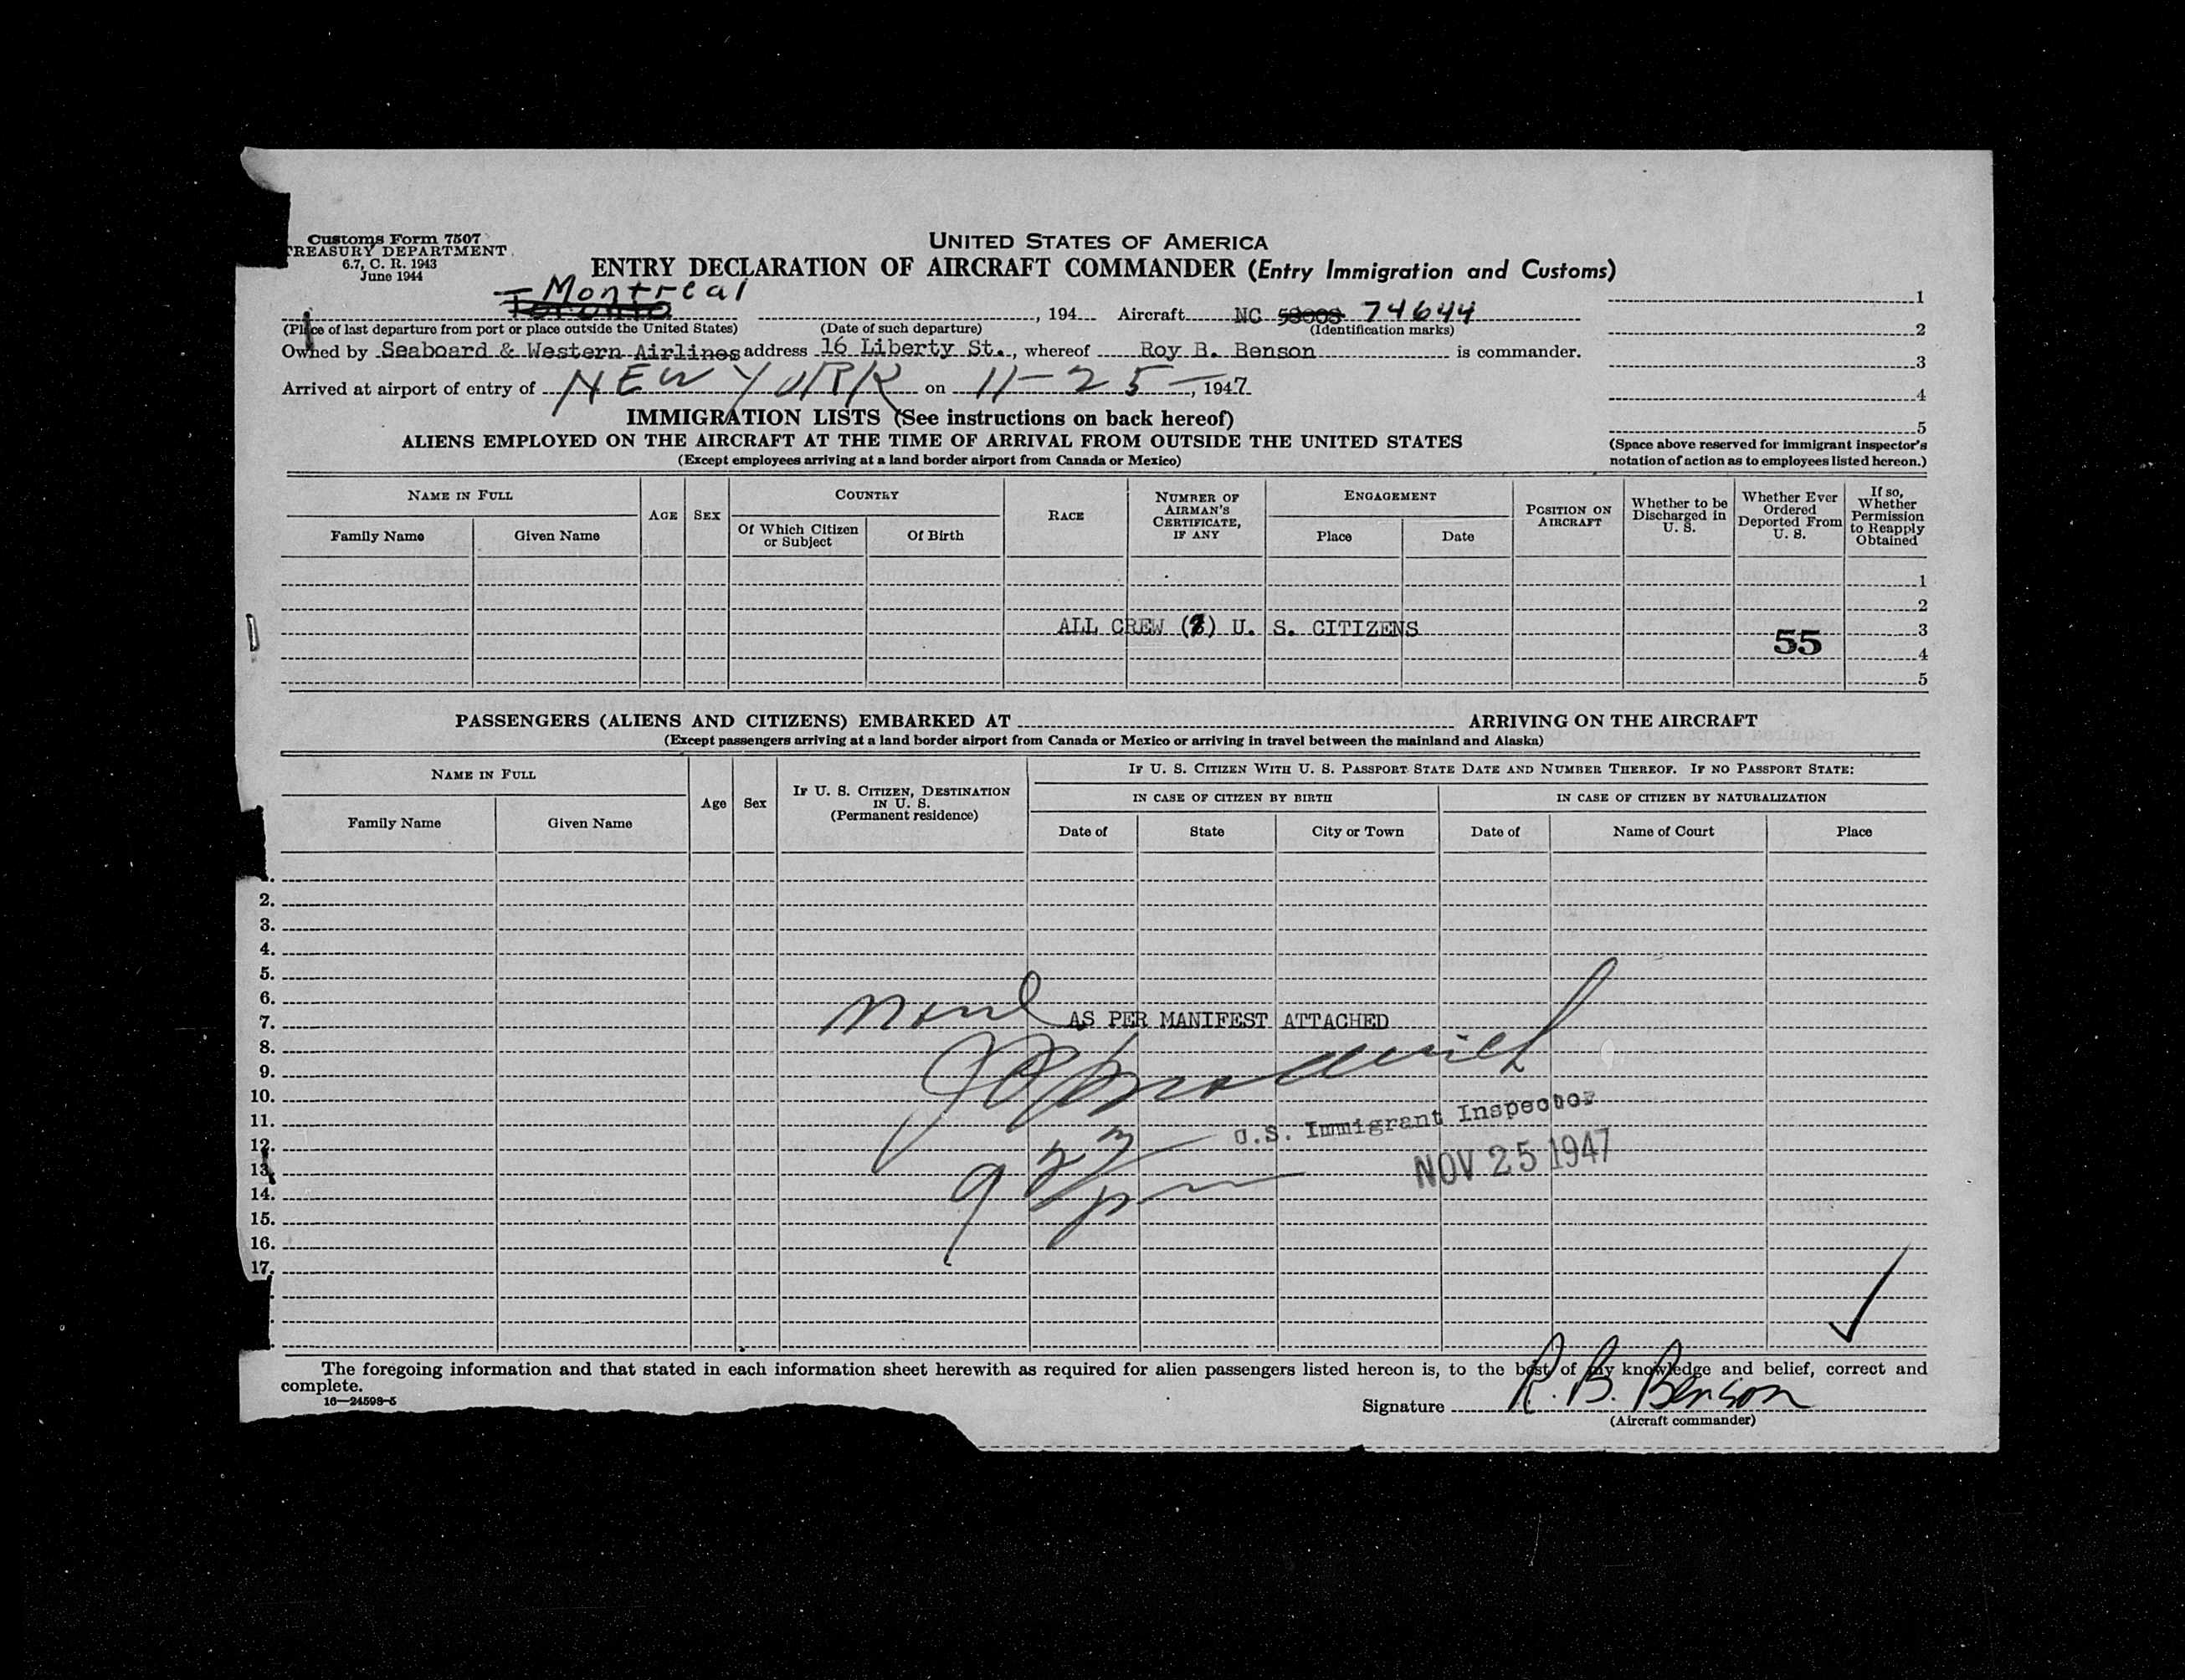 Customs Form 7507
TREASURY DEPARTMENT
6.7, C. R. 1943
June 1944
UNITED STATES OF AMERICA
ENTRY DECLARATION OF AIRCRAFT COMMANDER (Entry Immigration and Customs)
Montreal
Toronto , 194 Aircraft NC 74644
(Place of last departure from port or place outside the United States) (Date of such departure) (Identification marks)
Owned by Seaboard & Western Airlines address 16 Liberty St., whereof Roy B. Benson is commander.
Arrived at airport of entry of NEW YORK on 11-25-, 1947
1
2
3
4
5
(Space above reserved for immigrant inspector's
notation of action as to employees listed hereon.)
IMMIGRATION LISTS (See instructions on back hereof)
ALIENS EMPLOYED ON THE AIRCRAFT AT THE TIME OF ARRIVAL FROM OUTSIDE THE UNITED STATES
(Except employees arriving at a land border airport from Canada or Mexico)
NAME IN FULL
Family Name Given Name
AGE SEX
COUNTRY
Of Which Citizen
or Subject
Of Birth
RACE
NUMBER OF
AIRMAN'S
CERTIFICATE,
IF ANY
ENGAGEMENT
Place Date
POSITION ON
AIRCRAFT
Whether to be
Discharged in
U. S.
Whether Ever
Ordered
Deported From
U. S.
If so,
Whether
Permission
to Reapply
Obtained
1
2
ALL CREW ( ) U. S. CITIZENS 3
55
4
5
PASSENGERS (ALIENS AND CITIZENS) EMBARKED AT ARRIVING ON THE AIRCRAFT
(Except passengers arriving at a land border airport from Canada or Mexico or arriving in travel between the mainland and Alaska)
NAME IN FULL
Family Name Given Name
Age Sex
IF U. S. CITIZEN, DESTINATION
IN U. S.
(Permanent residence)
IF U. S. CITIZEN WITH U. S. PASSPORT STATE DATE AND NUMBER THEREOF. IF NO PASSPORT STATE:
IN CASE OF CITIZEN BY BIRTH IN CASE OF CITIZEN BY NATURALIZATION
Date of State City or Town Date of Name of Court Place
2.
3.
4.
5.
6.
7. None AS PER MANIFEST ATTACHED
8.
9.
10.
11.
U.S. Immigrant Inspector
12.
13.
NOV 25 1947
14.
15.
16.
17.
The foregoing information and that stated in each information sheet herewith as required for alien passengers listed hereon is, to the best of my knowledge and belief, correct and
complete.
16—24598-5
Signature R. B. Benson
(Aircraft commander)